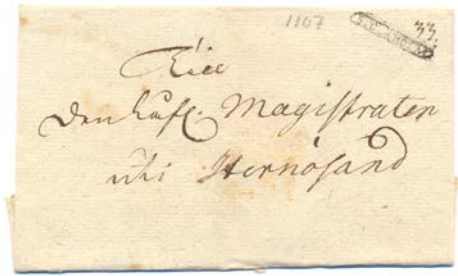 1107
33.
Till
den Låfl. Magistraten
uti Hernösand